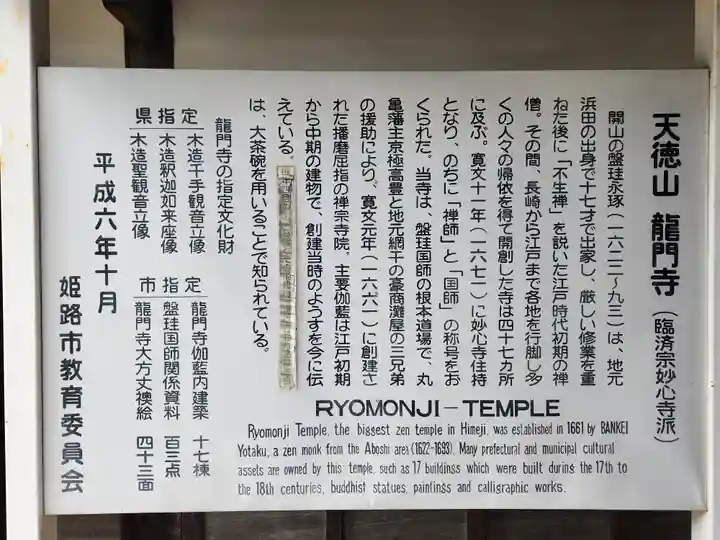 天徳山 龍門寺(臨済宗妙心寺派)
開山の盤珪永琢(一六二二~九三)は、地元
浜田の出身で十七才で出家し、厳しい修業を重
ねた後に「不生禅」を説いた江戸時代初期の禅
僧。その間、長崎から江戸まで各地を行脚し多
くの人々の帰依を得て開創した寺は四十七カ所
に及ぶ。寛文十一年(一六七一)に妙心寺住持
となり、のちに「禅師」と「国師」の称号をお
くられた。当寺は、盤珪国師の根本道場で、丸
亀藩主京極高豊と地元網干の豪商灘屋の三兄弟
の援助により、寛文元年(一六六一)に創建さ
れた播磨屈指の禅宗寺院。主要伽藍は江戸初期
から中期の建物で、創建当時のようすを今に伝
えている。
は、大茶碗を用いることで知られている。
龍門寺の指定文化財
県指定
木造千手観音立像
木造釈迦如来座像
木造聖観音立像
市指定
龍門寺伽藍内建築 十七棟
盤珪国師関係資料 百三点
龍門寺大方丈襖絵 四十三面
平成六年十月
姫路市教育委員会
RYOMONJI-TEMPLE
Ryomonji Temple, the biggest zen temple in Himeji, was established in 1661 by BANKEI
Yotaku, a zen monk from the Aboshi area (1622-1693). Many prefectural and municipal cultural
assets are owned by this temple, such as 17 buildings which were built during the 17th to
the 18th centuries, buddhist statues, paintings and calligraphic works.